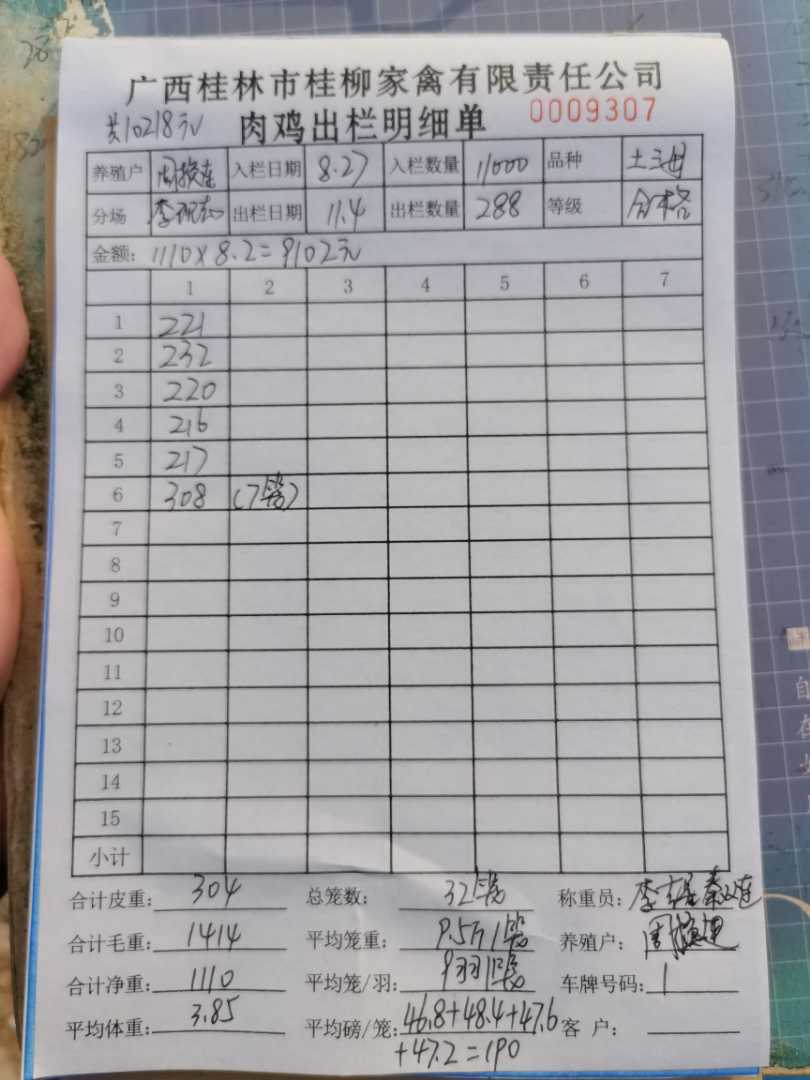 广西桂林市桂柳家禽有限责任公司
共10218元 肉鸡出栏明细单 0009307
养殖户 入栏日期 8.27 入栏数量 11000 品种 土三母
分场 出栏日期 11.4 出栏数量 288 等级 合格
金额: 1110×8.2=9102元
1 2 3 4 5 6 7
1 221
2 232
3 220
4 216
5 217
6 308 (7笼)
7
8
9
10
11
12
13
14
15
小计
合计皮重: 304 总笼数: 32笼 称重员:
合计毛重: 1414 平均笼重: 9.5斤/笼 养殖户:
合计净重: 1110 平均笼/羽: 9羽/笼 车牌号码: 1
平均体重: 3.85 平均磅/笼: 46.8+48.4+47.6 客 户:
+47.2=190